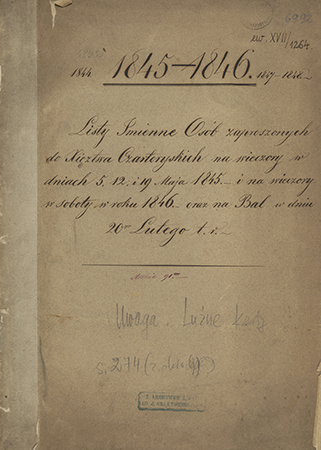 6992
ew. XVII/1264
1844 1845–1846. 1847–1848.–
Listy Imienne Osób zaproszonych
do Xięztwa Czartoryskich na wieczory w
dniach 5, 12, i 19 Maja 1845. – i na wieczory
w soboty w roku 1846 oraz na Bal w dniu
20go Lutego t. r. –
Uwaga. Luźne
s. 274